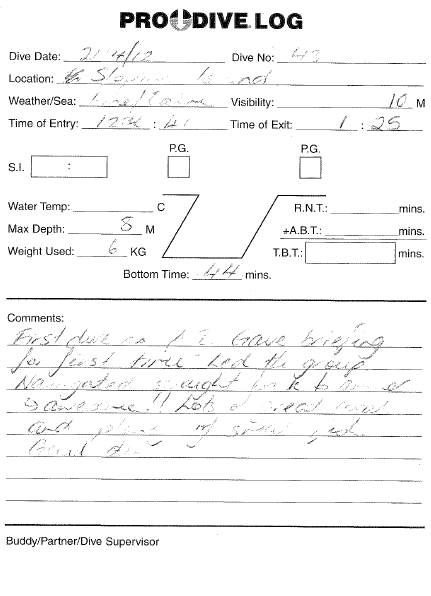 PRO DIVE LOG
Dive Date: 21/4/12 Dive No: 43
Location: Island
Weather/Sea: Fine/Calm Visibility: 10 M
Time of Entry: 12 : 41 Time of Exit: 1 : 25
P.G. P.G.
S.I. :
Water Temp: C R.N.T.: mins.
Max Depth: 8 M +A.B.T.: mins.
Weight Used: 6 KG T.B.T.: mins.
Bottom Time: 44 mins.
Comments:
First dive Gave briefing
for first time Led the group
Navigated straight
awesome!! Lots
and of
Buddy/Partner/Dive Supervisor